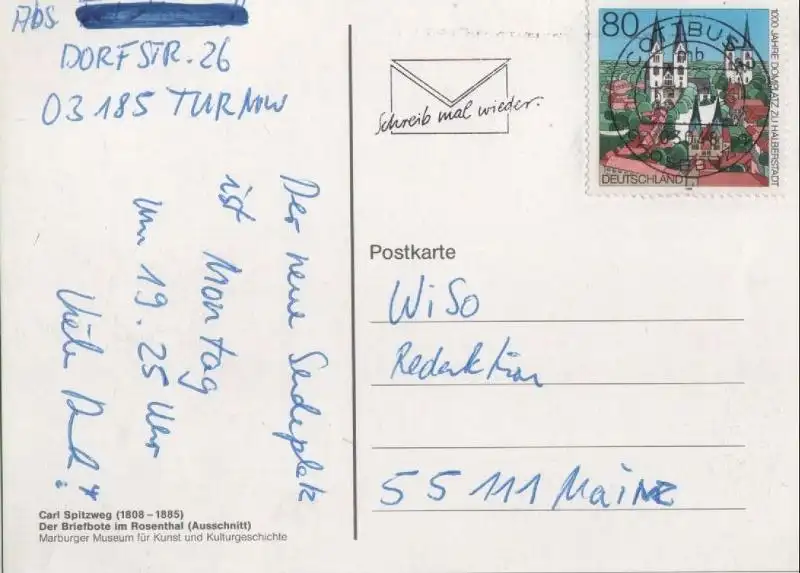 Abs
DORFSTR. 26
03185 TURNOW
Der neue Sendeplatz
ist Montag
um 19.25 Uhr
Vielen Dank!
Carl Spitzweg (1808–1885)
Der Briefbote im Rosenthal (Ausschnitt)
Marburger Museum für Kunst und Kulturgeschichte
Schreib mal wieder.
80
DEUTSCHLAND
1000 JAHRE DOMPLATZ ZU HALBERSTADT
COTTBUS
Postkarte
WiSo
Redaktion
55111 Mainz